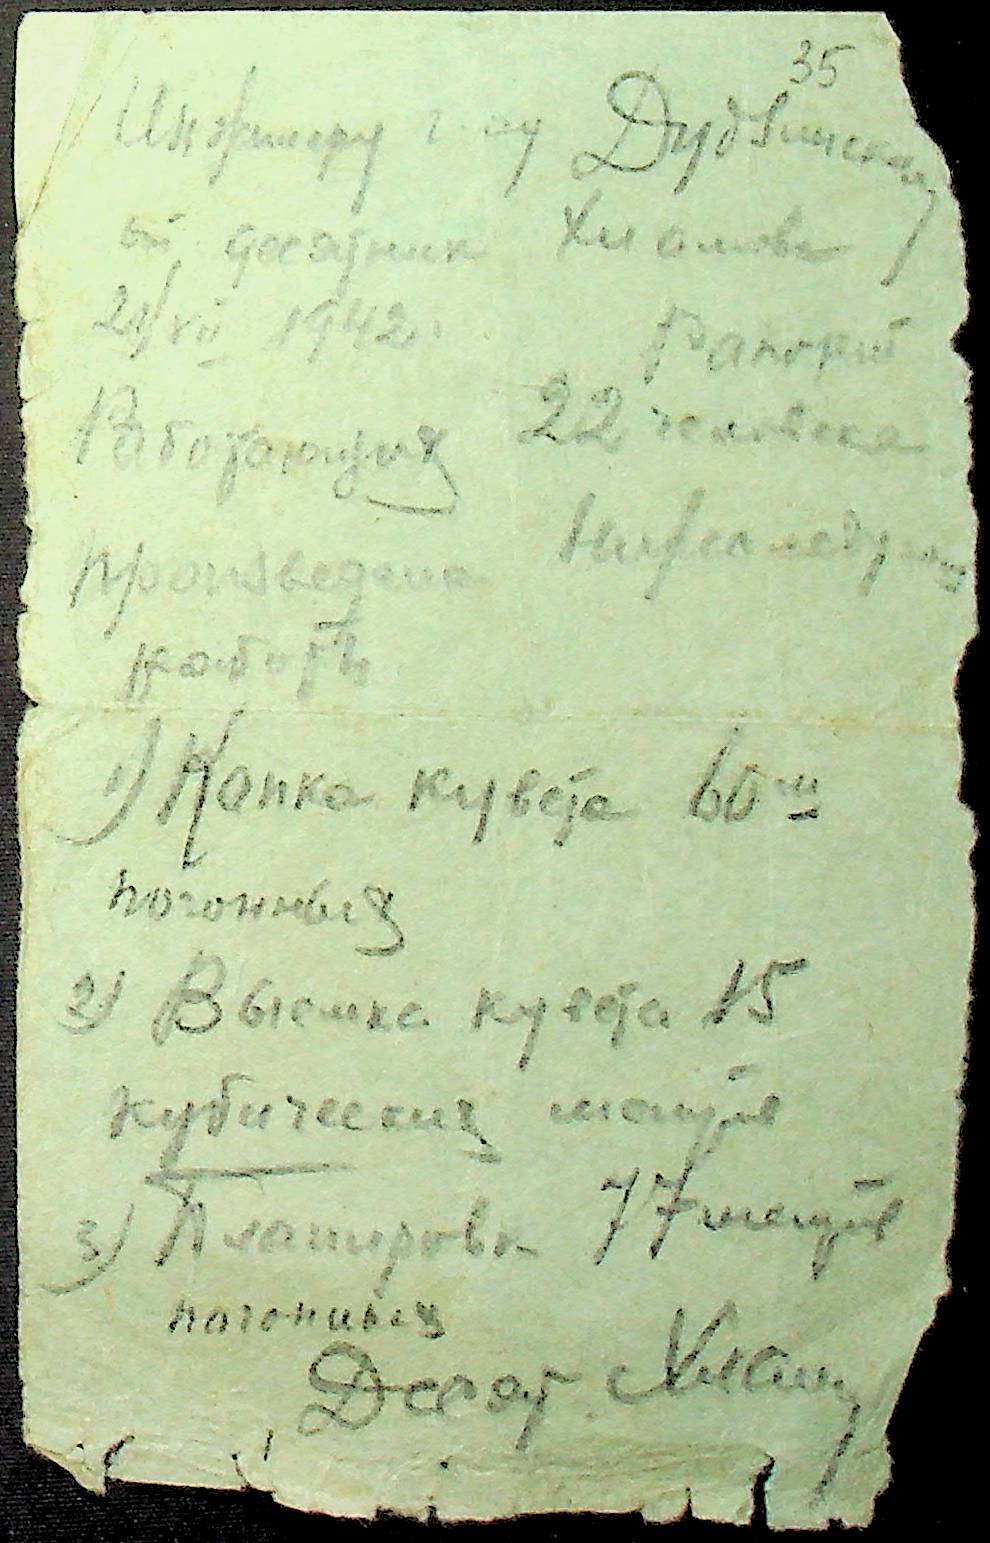 35
Инженеру г-ну Дудвинском
от десятник Хламова
21/VII 1942 г. Рапорт
Работающих 22 человека
произведена Нижеследующ
работы
1) Копка кувета 60 м
погонных
2) Выемка кувета 15
кубических метров
3) Планировк 77 метров
погонных
Десят Хлам